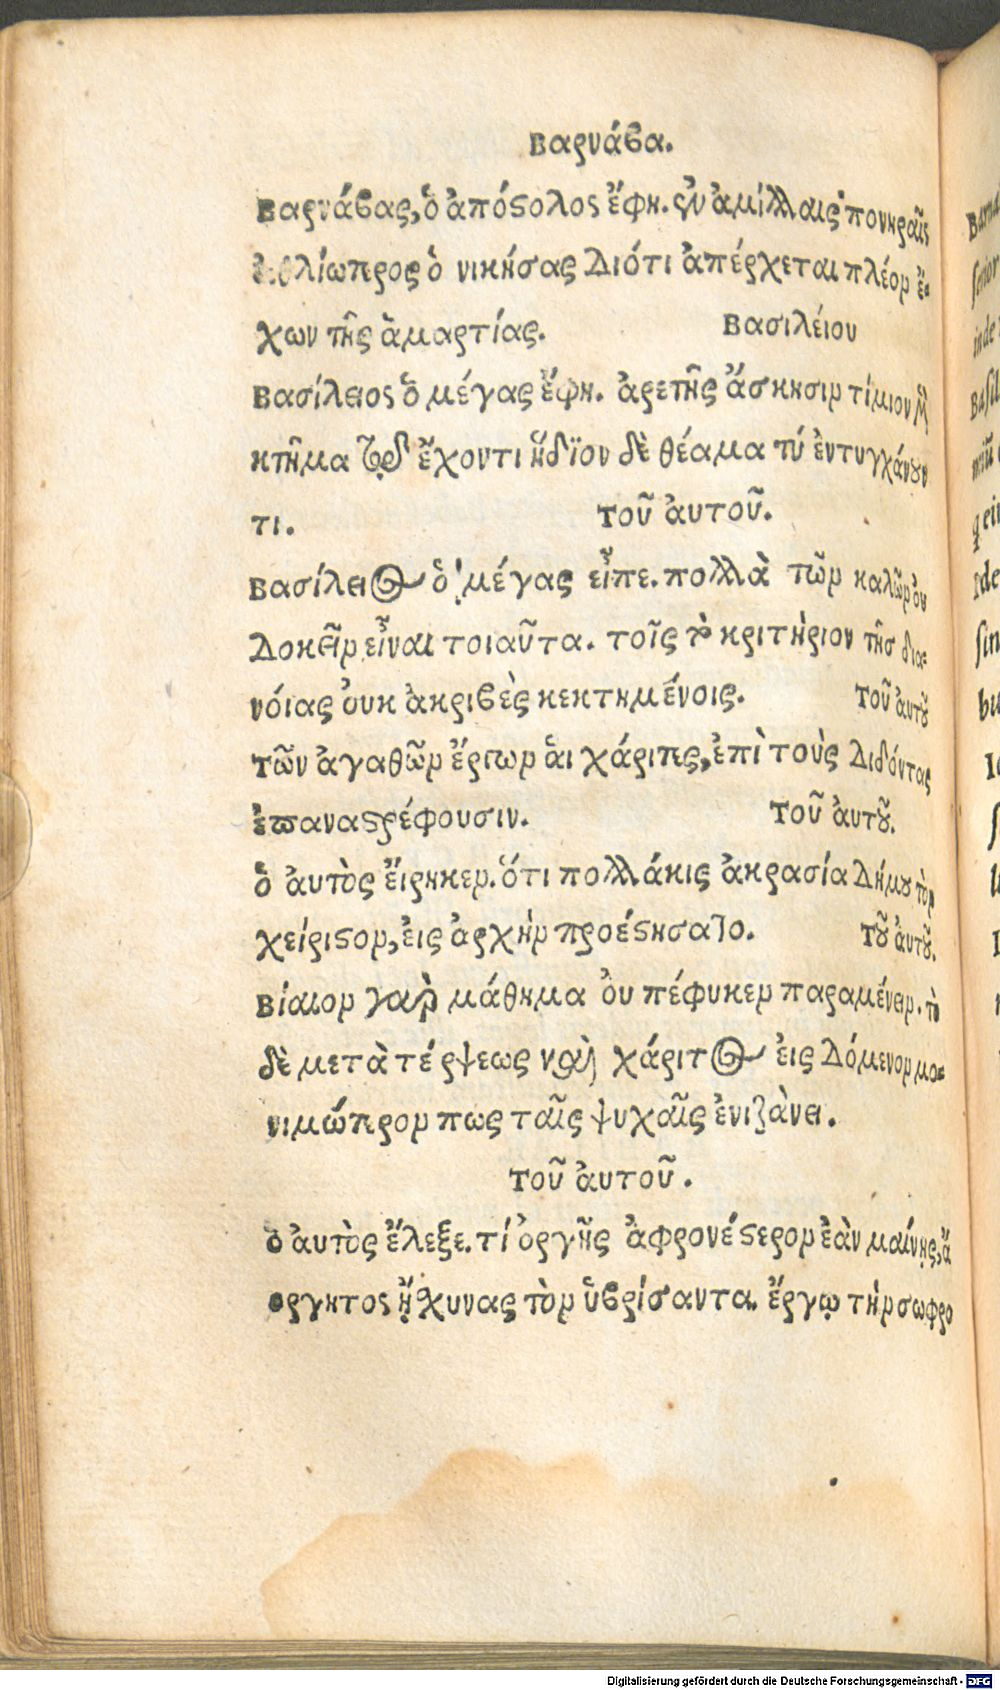 Βαρνάβα.
Βαρνάβας, ὁ ἀπόστολος ἔφη. ἐν ἁμίλλαις πονηραῖς
ἀθλιώτερος ὁ νικήσας Διότι ἀπέρχεται πλέον ἔ-
χων τῆς ἁμαρτίας. Βασιλείου
Βασίλειος ὁ μέγας ἔφη. ἀρετῆς ἄσκησιν τίμιον μὲν
κτῆμα τῷ ἔχοντι ἥδϊον δὲ θέαμα τῷ ἐντυγχάνουν
τι. Τοῦ ἀυτοῦ.
Βασίλειος ὁ μέγας εἶπε. πολλὰ τῶν καλῶν ὀυ
Δοκεῖν εἶναι τοιαῦτα. τοῖς τὸ κριτήριον τῆς δια-
νοίας ὀυκ ἀκριβὲς κεκτημένοις. Τοῦ ἀυτοῦ
Τῶν ἀγαθῶν ἔργων ἁι χάριτες, ἐπὶ τοὺς Διδόντας
ἐπαναστρέφουσιν. Τοῦ ἀυτοῦ.
ὁ ἀυτὸς ἔιρηκεν. ὅτι πολλάκις ἀκρασία Δήμου τὸν
χείριστον, ἐις ἀρχὴν προέστησατο. Τοῦ ἀυτοῦ.
Βίαιον γαρ μάθημα ὀυ πέφυκεν παραμένειν. τὸ
δὲ μετὰ τέρψεως καὶ χάριτος ἐις Δόμενον μο-
νιμώτερον πως ταῖς ψυχαῖς ἐνιζὰνει.
Τοῦ ἀυτοῦ.
ὁ ἀυτὸς ἔλεξε. τί ὀργῆς ἀφρονέστερον ἐὰν μαίνῃς, ἄ
οργητος ᾔσχυνας τὸν ὑβρίσαντα. ἔργῳ τὴν σωφρο
Digitalisierung gefördert durch die Deutsche Forschungsgemeinschaft - DFG